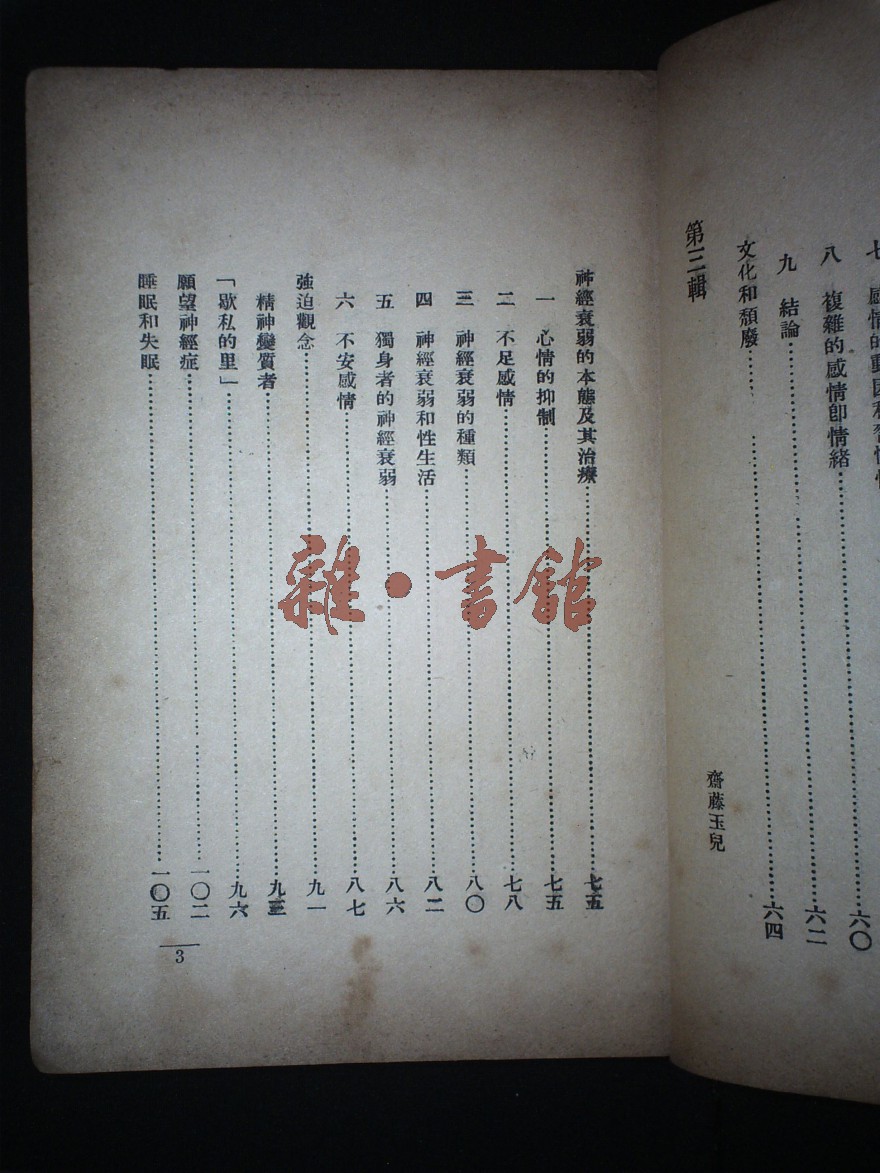 七　感情的動因和
八　複雜的感情卽情緒……六二
九　結論……六四
文化和頹廢……
第三輯
齋藤玉兒
神經衰弱的本態及其治療……七五
一　心情的抑制……七五
二　不足感情……七八
三　神經衰弱的種類……八〇
四　神經衰弱和性生活……八二
五　獨身者的神經衰弱……八六
六　不安感情……八七
強迫觀念……九一
精神變質者……九三
「歇私的里」……九六
願望神經症……一〇二
睡眠和失眠……一〇五
3
雜·書館